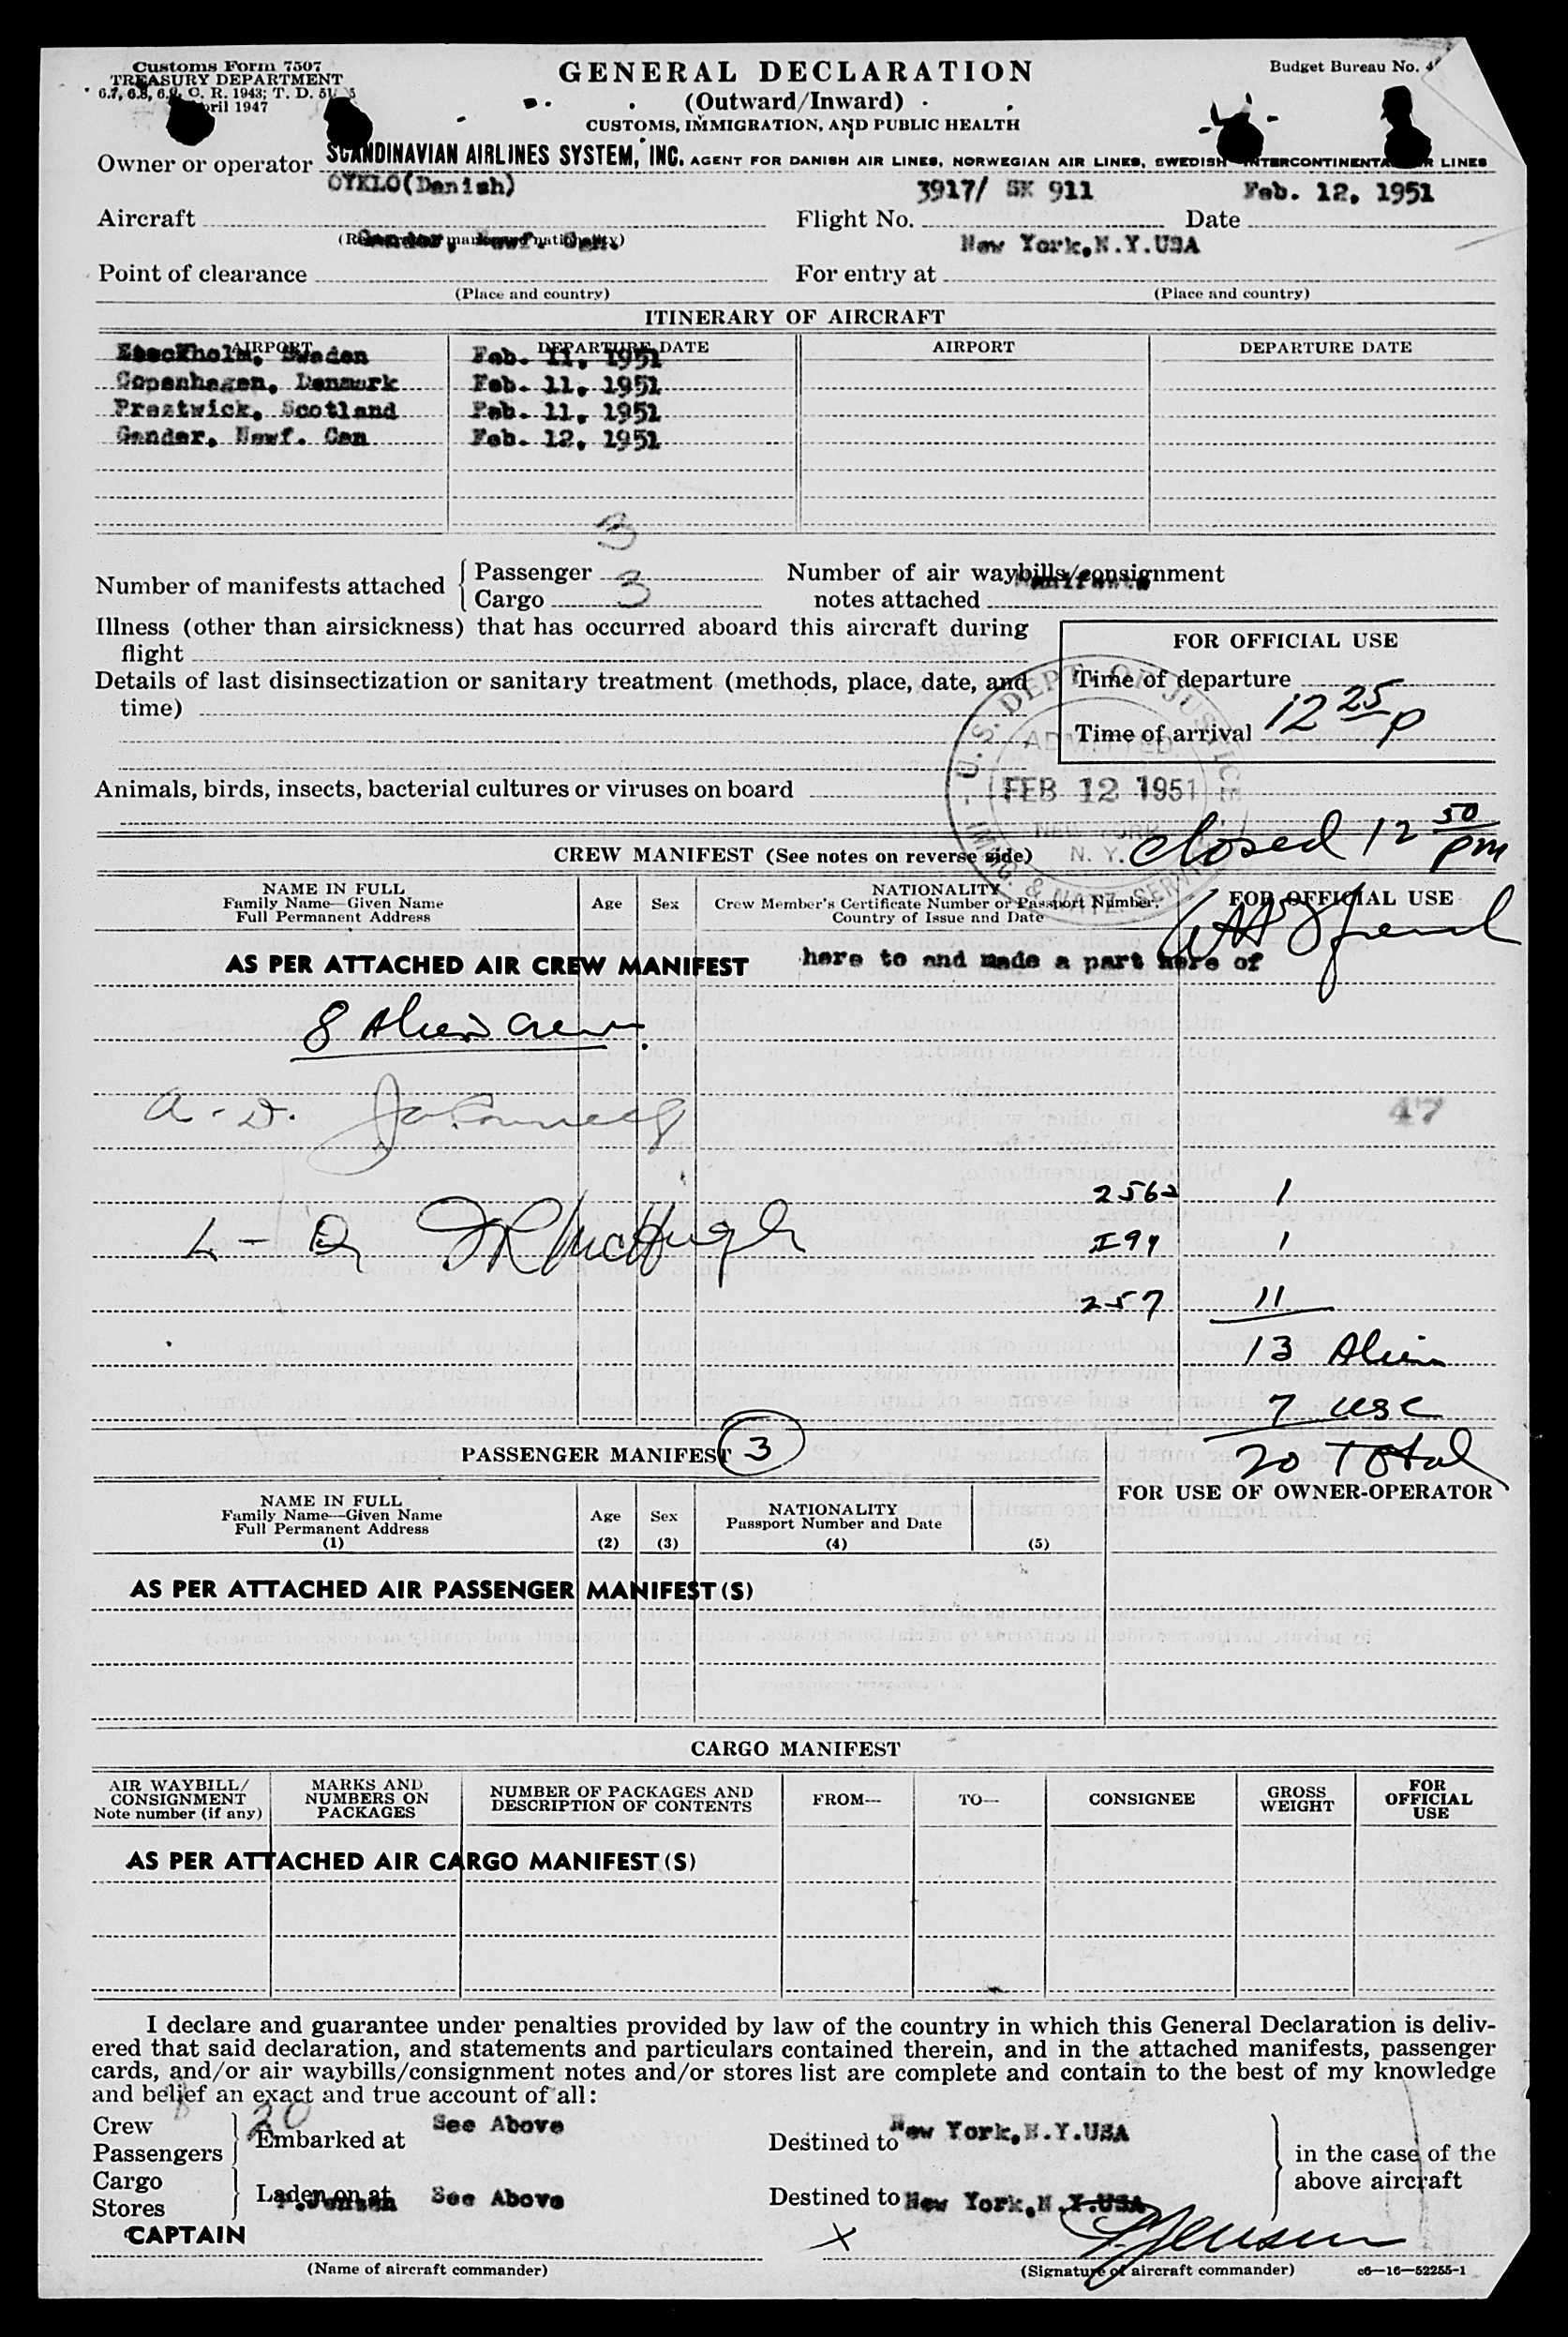 Customs Form 7507
TREASURY DEPARTMENT
6.7, 6.8, 6.9, C. R. 1943; T. D.
April 1947
GENERAL DECLARATION
(Outward/Inward)
CUSTOMS, IMMIGRATION, AND PUBLIC HEALTH
Budget Bureau No.
Owner or operator SCANDINAVIAN AIRLINES SYSTEM, INC. AGENT FOR DANISH AIR LINES, NORWEGIAN AIR LINES, SWEDISH INTERCONTINENTAL AIR LINES
Aircraft OYKLO(Danish) Flight No. 3917/ SK 911 Date Feb. 12, 1951
Point of clearance Gander, Newf. Can. For entry at New York,N.Y.USA
(Place and country) (Place and country)
ITINERARY OF AIRCRAFT
AIRPORT DEPARTURE DATE AIRPORT DEPARTURE DATE
Stockholm, Sweden Feb. 11, 1951
Copenhagen, Denmark Feb. 11, 1951
Prestwick, Scotland Feb. 11, 1951
Gander, Newf. Can Feb. 12, 1951
3
Number of manifests attached { Passenger
Cargo 3
Number of air waybills/consignment
notes attached Manifests
Illness (other than airsickness) that has occurred aboard this aircraft during
flight
Details of last disinsectization or sanitary treatment (methods, place, date, and
time)
FOR OFFICIAL USE
Time of departure
Time of arrival 12 25 p
Animals, birds, insects, bacterial cultures or viruses on board
U.S. DEPT. OF JUSTICE
ADMITTED
FEB 12 1951
NEW YORK
N. Y.
IMMIG. & NATZ. SERVICE
closed 12 50 pm
CREW MANIFEST (See notes on reverse side)
NAME IN FULL
Family Name—Given Name
Full Permanent Address
Age Sex
NATIONALITY
Crew Member's Certificate Number or Passport Number,
Country of Issue and Date
FOR OFFICIAL USE
AS PER ATTACHED AIR CREW MANIFEST here to and made a part here of
8 Alien Crew.
a - D.
47
256a 1
L - D JR McHugh I 94 1
257 11
13 Alien
7 USC
20 Total
PASSENGER MANIFEST 3
FOR USE OF OWNER-OPERATOR
NAME IN FULL
Family Name—Given Name
Full Permanent Address
(1)
Age
(2)
Sex
(3)
NATIONALITY
Passport Number and Date
(4) (5)
AS PER ATTACHED AIR PASSENGER MANIFEST(S)
CARGO MANIFEST
AIR WAYBILL/
CONSIGNMENT
Note number (if any)
MARKS AND
NUMBERS ON
PACKAGES
NUMBER OF PACKAGES AND
DESCRIPTION OF CONTENTS
FROM— TO— CONSIGNEE
GROSS
WEIGHT
FOR
OFFICIAL
USE
AS PER ATTACHED AIR CARGO MANIFEST(S)
I declare and guarantee under penalties provided by law of the country in which this General Declaration is deliv-
ered that said declaration, and statements and particulars contained therein, and in the attached manifests, passenger
cards, and/or air waybills/consignment notes and/or stores list are complete and contain to the best of my knowledge
and belief an exact and true account of all:
Crew 8
Passengers 20 Embarked at See Above Destined to New York,N.Y.USA
Cargo
Stores Laden on at See Above Destined to New York,N.Y.USA
in the case of the
above aircraft
P.Jensen
CAPTAIN
X P Jensen
(Name of aircraft commander) (Signature of aircraft commander) c6—16—52255-1